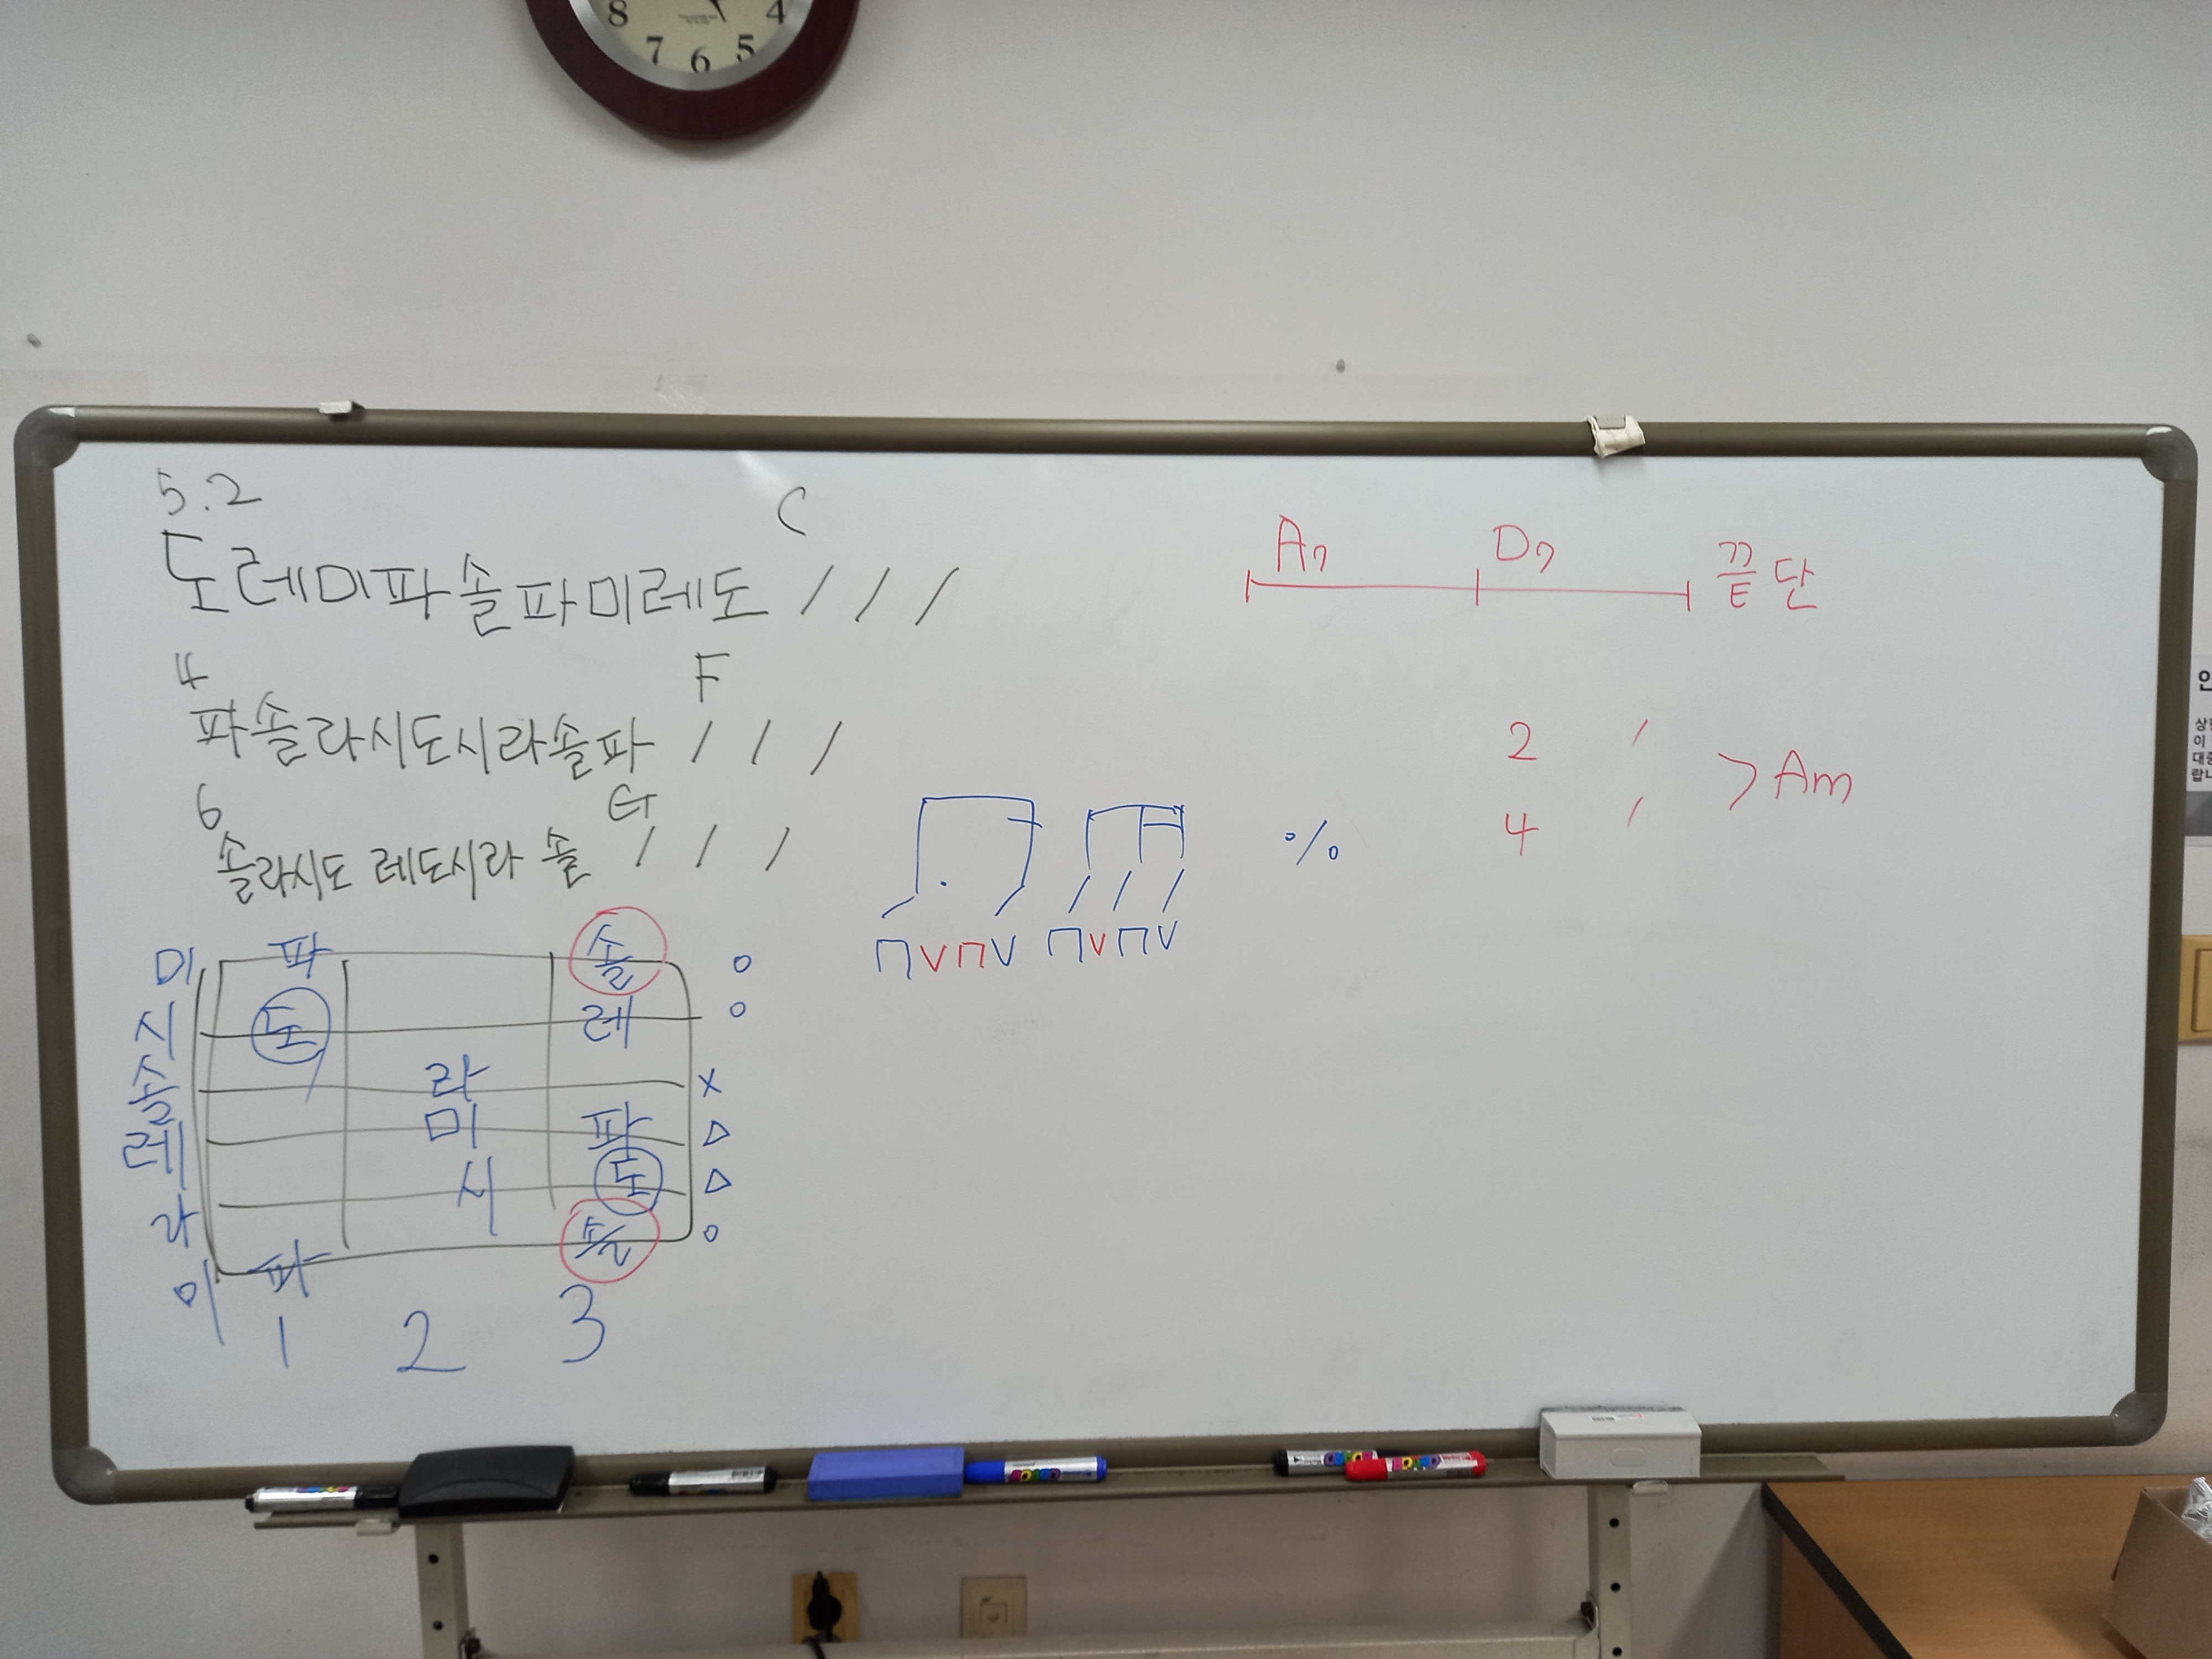 8 7 6 5 4
5.2
C
도레미파솔파미레도 / / /
4
F
파솔라시도시라솔파 / / /
6
G
솔라시도 레도시라 솔 / / /
A7 D7 끝단
2 /
> Am
4 /
%
/ / / / /
ㄇVㄇV ㄇVㄇV
미 파 솔 o
시 도 레 o
솔 라 x
레 미 파 △
라 시 도 △
미 파 솔 o
1 2 3